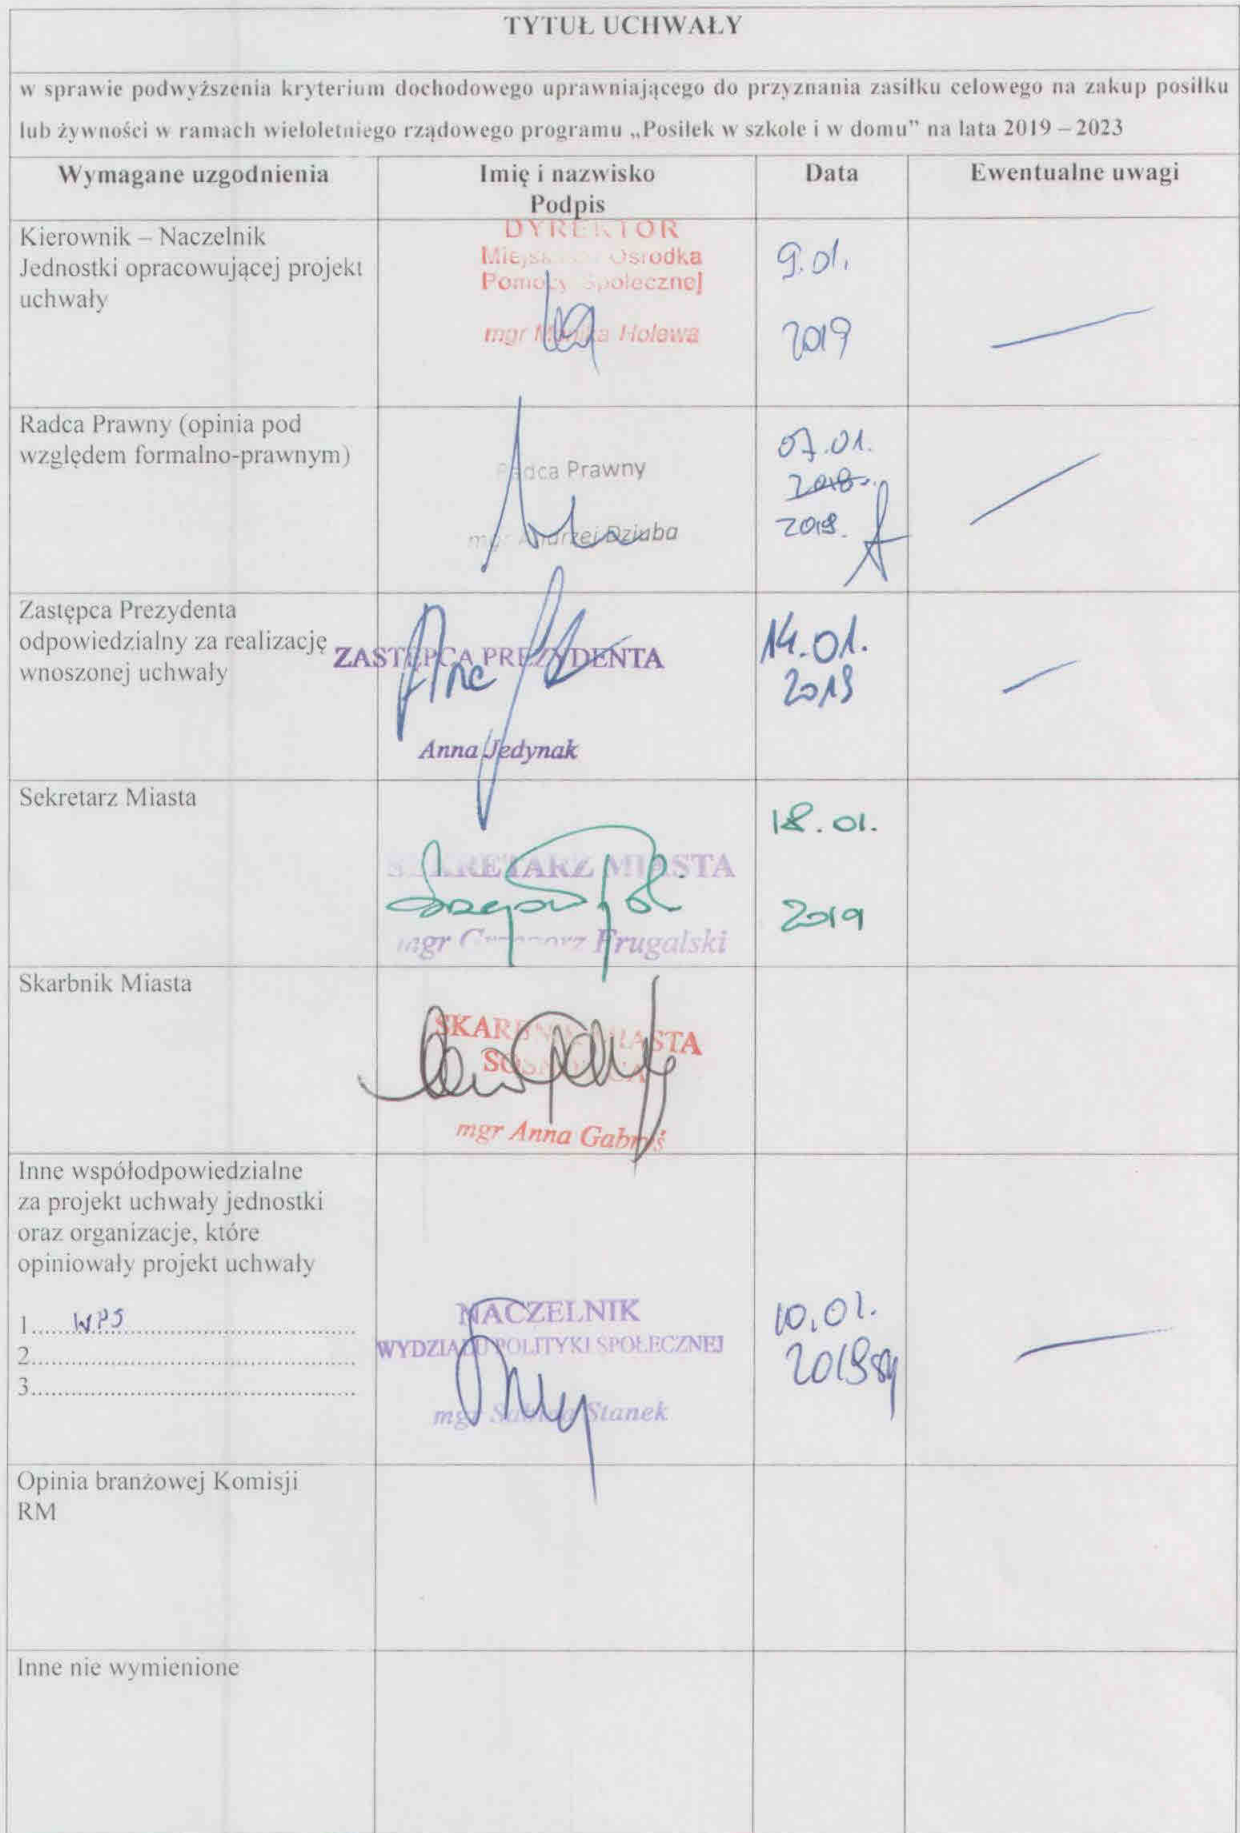 TYTUŁ UCHWAŁY
w sprawie podwyższenia kryterium dochodowego uprawniającego do przyznania zasiłku celowego na zakup posiłku
lub żywności w ramach wieloletniego rządowego programu „Posiłek w szkole i w domu” na lata 2019 – 2023
Wymagane uzgodnienia
Imię i nazwisko
Podpis
Data
Ewentualne uwagi
Kierownik – Naczelnik
Jednostki opracowującej projekt
uchwały
DYREKTOR
Miejskiego Ośrodka
Pomocy Społecznej
mgr Monika Holewa
9.01.
2019
Radca Prawny (opinia pod
względem formalno-prawnym)
Radca Prawny
mgr Andrzej Dziuba
07.01.
2018.
2019.
Zastępca Prezydenta
odpowiedzialny za realizację
wnoszonej uchwały
ZASTĘPCA PREZYDENTA
Anna Jedynak
14.01.
2019
Sekretarz Miasta
SEKRETARZ MIASTA
mgr Grzegorz Frugalski
18.01.
2019
Skarbnik Miasta
SKARBNIK MIASTA
SOSNOWCA
mgr Anna Gabryś
Inne współodpowiedzialne
za projekt uchwały jednostki
oraz organizacje, które
opiniowały projekt uchwały
1......WPS..................................
2................................................
3................................................
NACZELNIK
WYDZIAŁU POLITYKI SPOŁECZNEJ
mgr Sabina Stanek
10.01.
2019
Opinia branżowej Komisji
RM
Inne nie wymienione